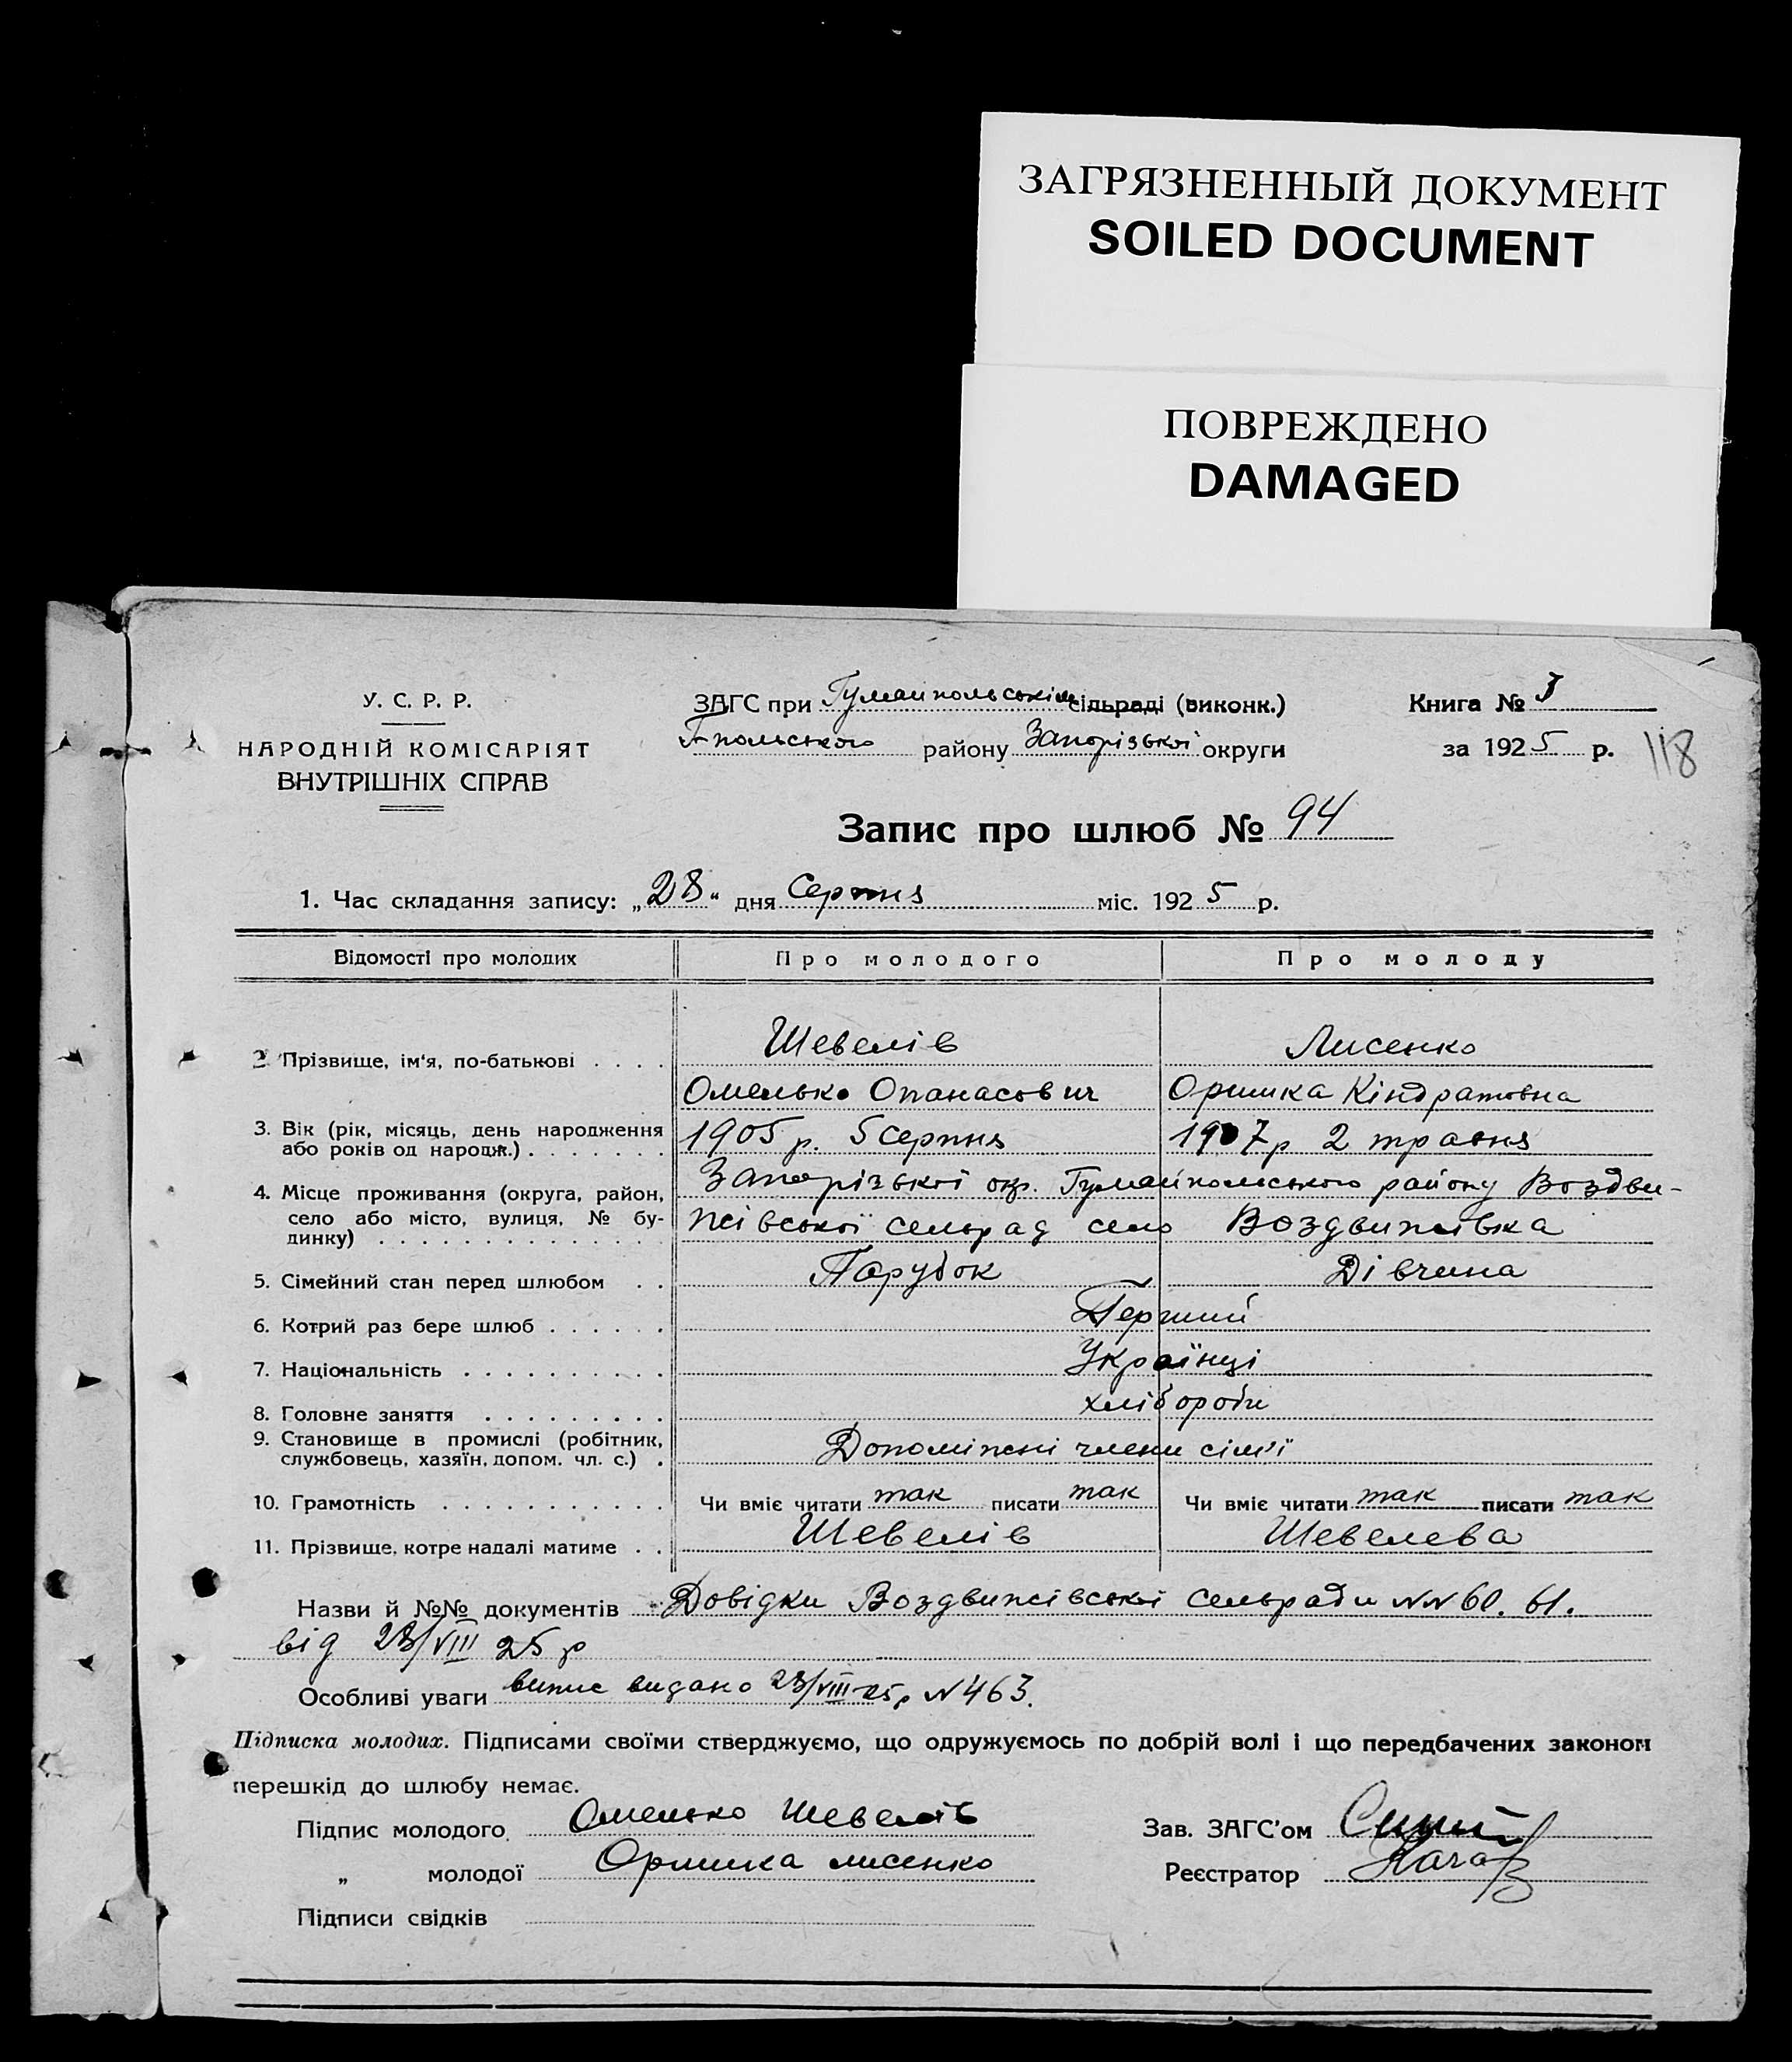 ЗАГРЯЗНЕННЫЙ ДОКУМЕНТ
SOILED DOCUMENT
ПОВРЕЖДЕНО
DAMAGED
У. С. Р. Р.
НАРОДНІЙ КОМІСАРІЯТ
ВНУТРІШНІХ СПРАВ
ЗАГС при Гумайпольськім сільраді (виконк.)
Г-польського району Запорізької округи
Книга №
за 1925 р.
118
Запис про шлюб № 94
1. Час складання запису: „28“ дня Серпня міс. 1925 р.
Відомості про молодих Про молодого Про молоду
2 Прізвище, ім'я, по-батькові . . . . Шевелів Лисенко
Омелько Опанасович Оришка Кіндратовна
3. Вік (рік, місяць, день народження
або років од народж.) . . . . . . . 1905 р. 5 серпня 1907 р 2 травня
4. Місце проживання (округа, район, Запорізької окр. Гумайпольського району Воздви-
село або місто, вулиця, № бу- жівської сельрад село Воздвижівка
динку) . . . . . . . . . . . . . .
5. Сімейний стан перед шлюбом . . Парубок Дівчина
6. Котрий раз бере шлюб . . . . . . Перший
7. Національність . . . . . . . . . . Українці
8. Головне заняття . . . . . . . . . хлібороби
9. Становище в промислі (робітник,
службовець, хазяїн, допом. чл. с.) . Допоміжні члени сім'ї
10. Грамотність . . . . . . . . . . . Чи вміє читати так писати так Чи вміє читати так писати так
11. Прізвище, котре надалі матиме . . Шевелів Шевелева
Назви й №№ документів Довідки Воздвижівської сельради NN 60. 61.
від 28/VIII 25 р
Особливі уваги випис видано 28/VIII-25 р N 463.
Підписка молодих. Підписами своїми стверджуємо, що одружуємось по добрій волі і що передбачених законом
перешкід до шлюбу немає.
Підпис молодого Омелько Шевелів
„ молодої Оришка лисенко
Підписи свідків
Зав. ЗАГС'ом
Реєстратор